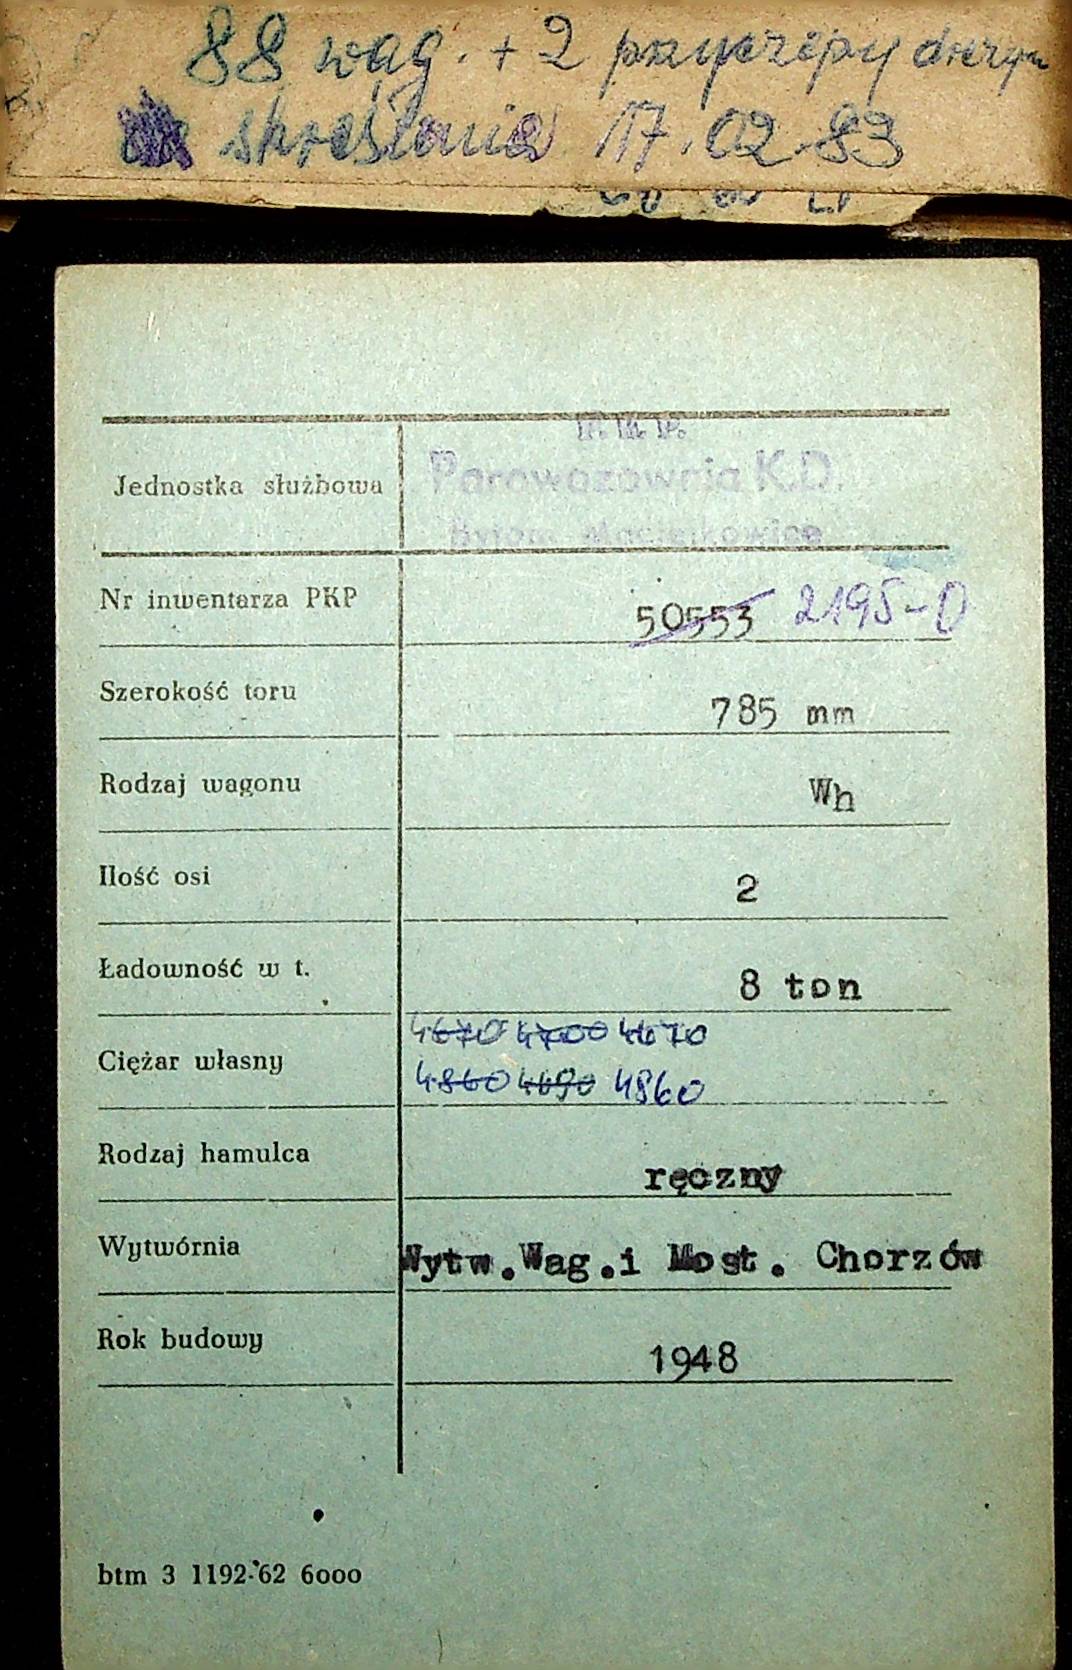 88 wag. + 2 przyczepy drezyn
skreślenia 17.02.83
Jednostka służbowa
Parowozownia K.D.
Bytom Maciejkowice
Nr inwentarza PKP 50553 2195-D
Szerokość toru 785 mm
Rodzaj wagonu Wh
Ilość osi 2
Ładowność w t. 8 ton
4670 4700 4670
Ciężar własny
4860 4690 4860
Rodzaj hamulca ręczny
Wytwórnia Wytw.Wag.i Most. Chorzów
Rok budowy 1948
btm 3 1192-62 6000